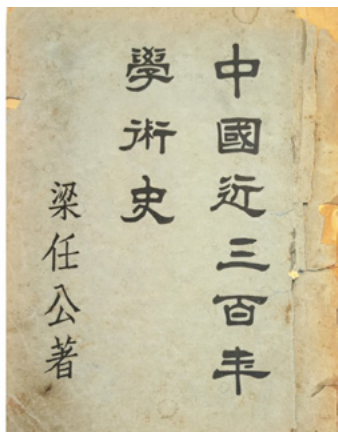 中國近三百年
學術史
梁任公著